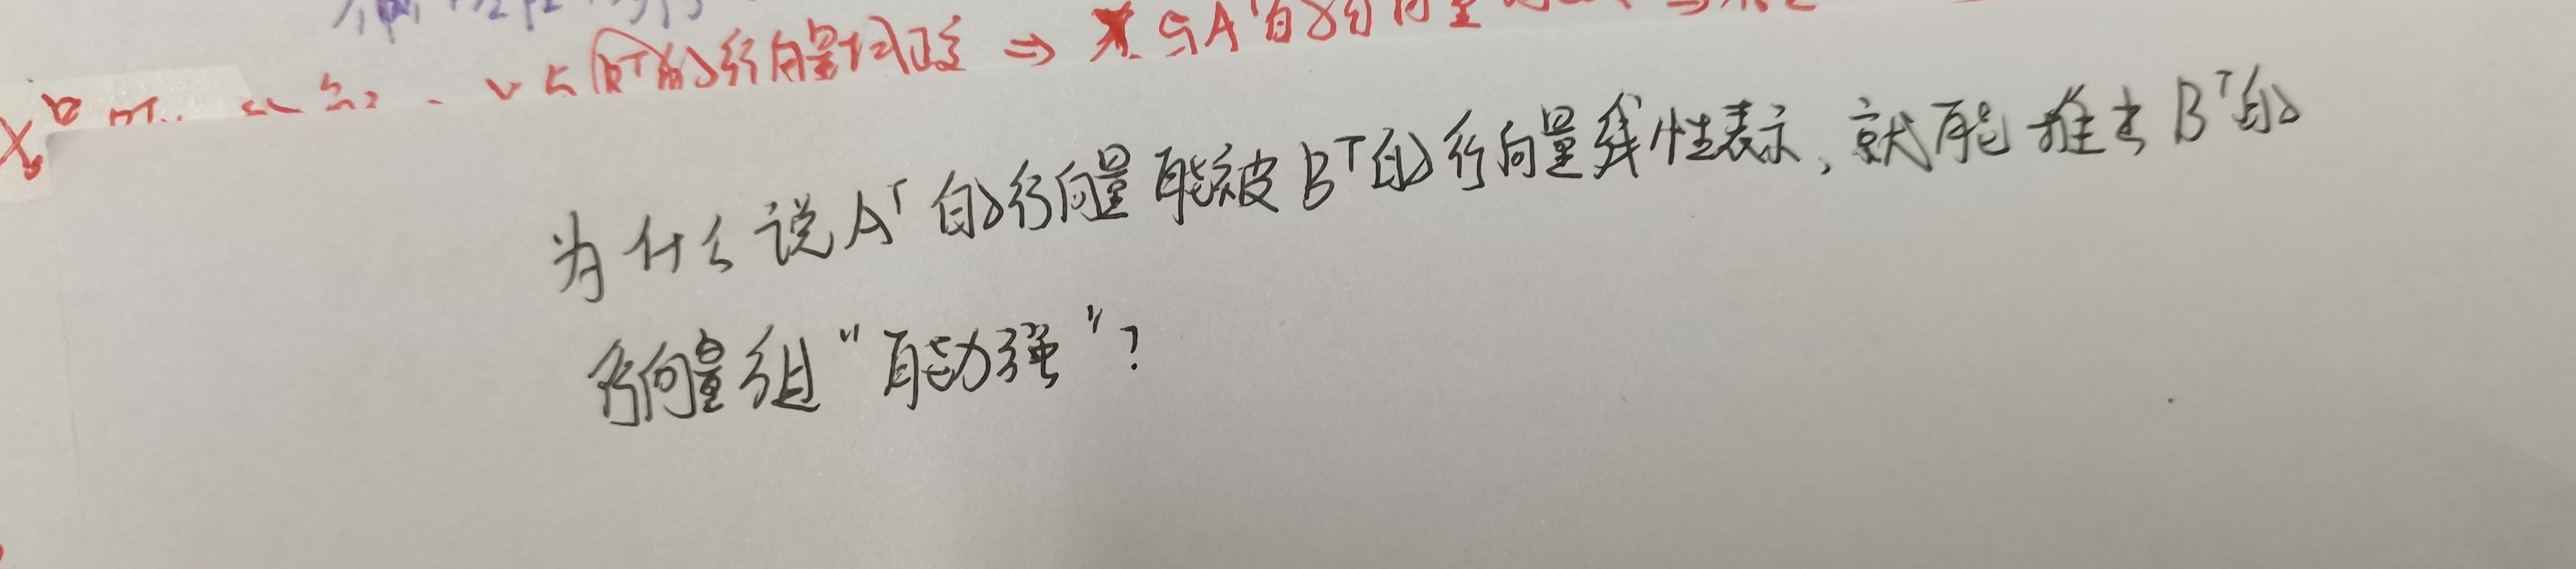 的行向量均正交 ⇒ 与A^T的行向量
为什么说A^T的行向量能被B^T的行向量线性表示，就能推出B^T的
行向量组"能力强"？